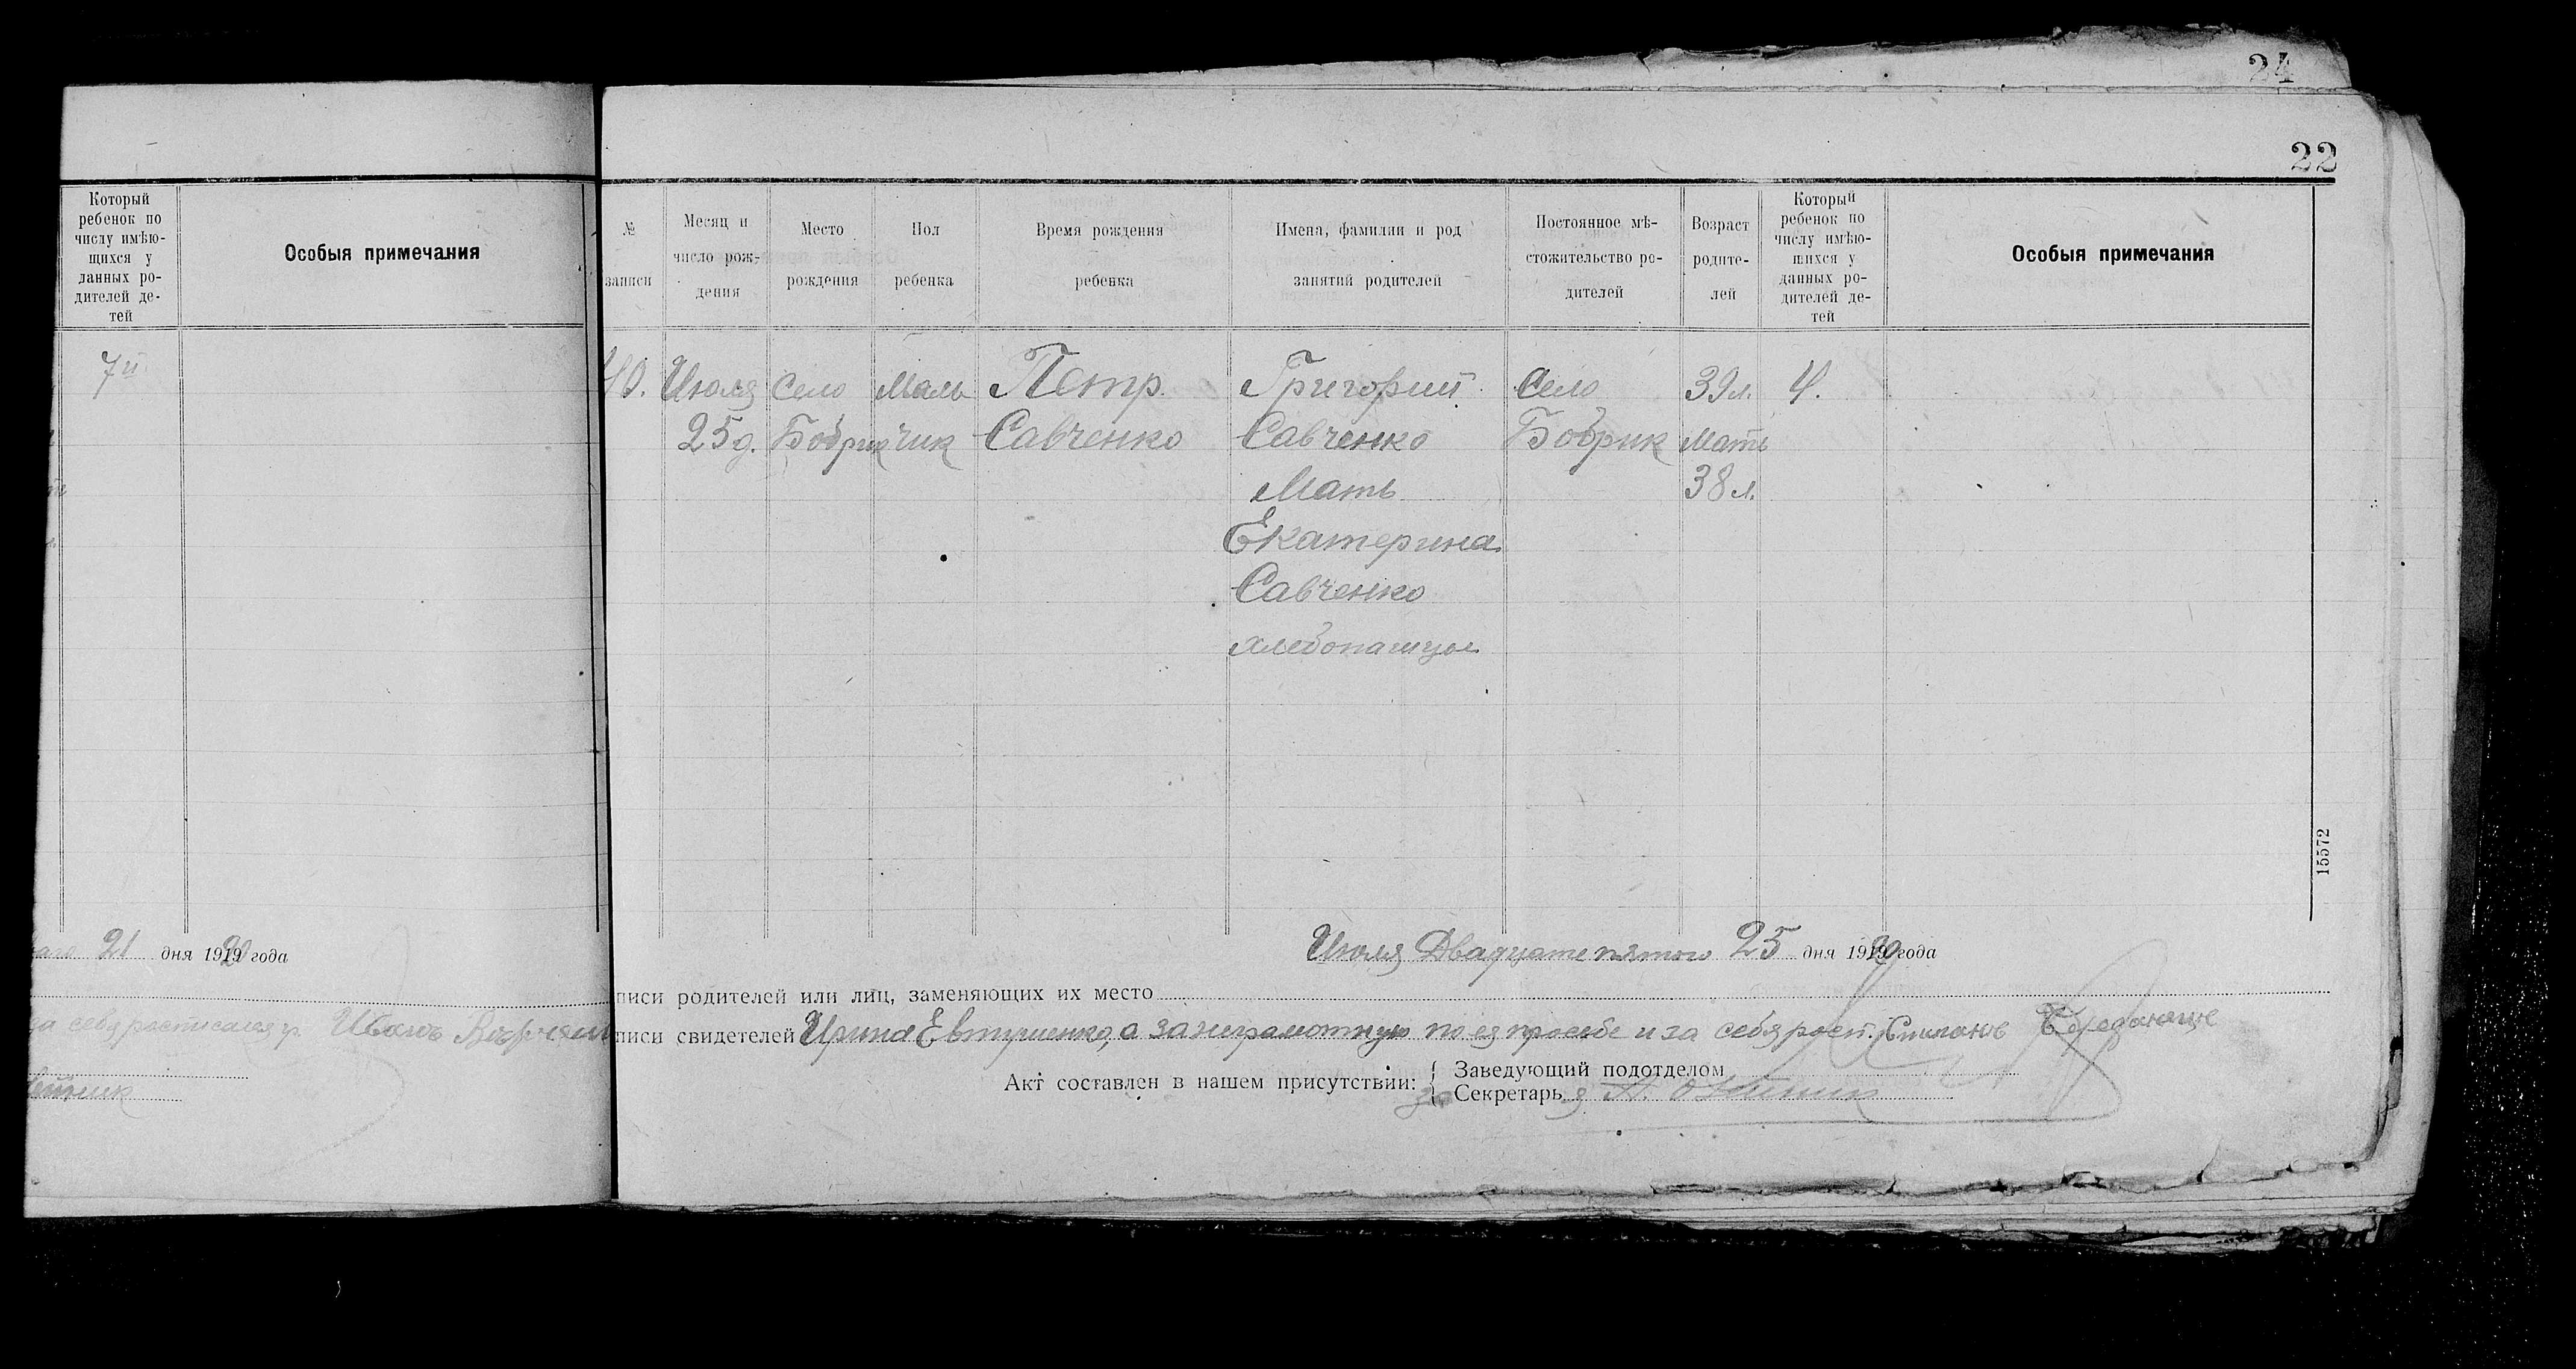 24
22
Который
ребенок по
числу имѣю-
щихся у
данных ро-
дителей де-
тей
Особыя примечания
7й
21 дня 1920 года
за себя росписался Иванъ
№
записи
Месяц и
число рож-
дения
Место
рождения
Пол
ребенка
Время рождения
ребенка
Имена, фамилии и род
занятий родителей
Постоянное мѣ-
стожительство ро-
дителей
Возраст
родите-
лей
Который
ребенок по
числу имѣю-
щихся у
данных ро-
дителей де-
тей
Особыя примечания
40.
Июля
25 д.
Село
Бобрик
Маль
чик
Петр
Савченко
Григорий
Савченко
Мать
Екатерина
Савченко
хлебопашцы
Село
Бобрик
39 л.
Мать
38 л.
4.
15572
Июля Двадцать пятого 25 дня 1920 года
писи родителей или лиц, заменяющих их место
писи свидетелей Ирина Евтушенко, а за неграмотную по ея просьбе и за себя росп.
Акт составлен в нашем присутствии:
Заведующий подотделом
Секретарь